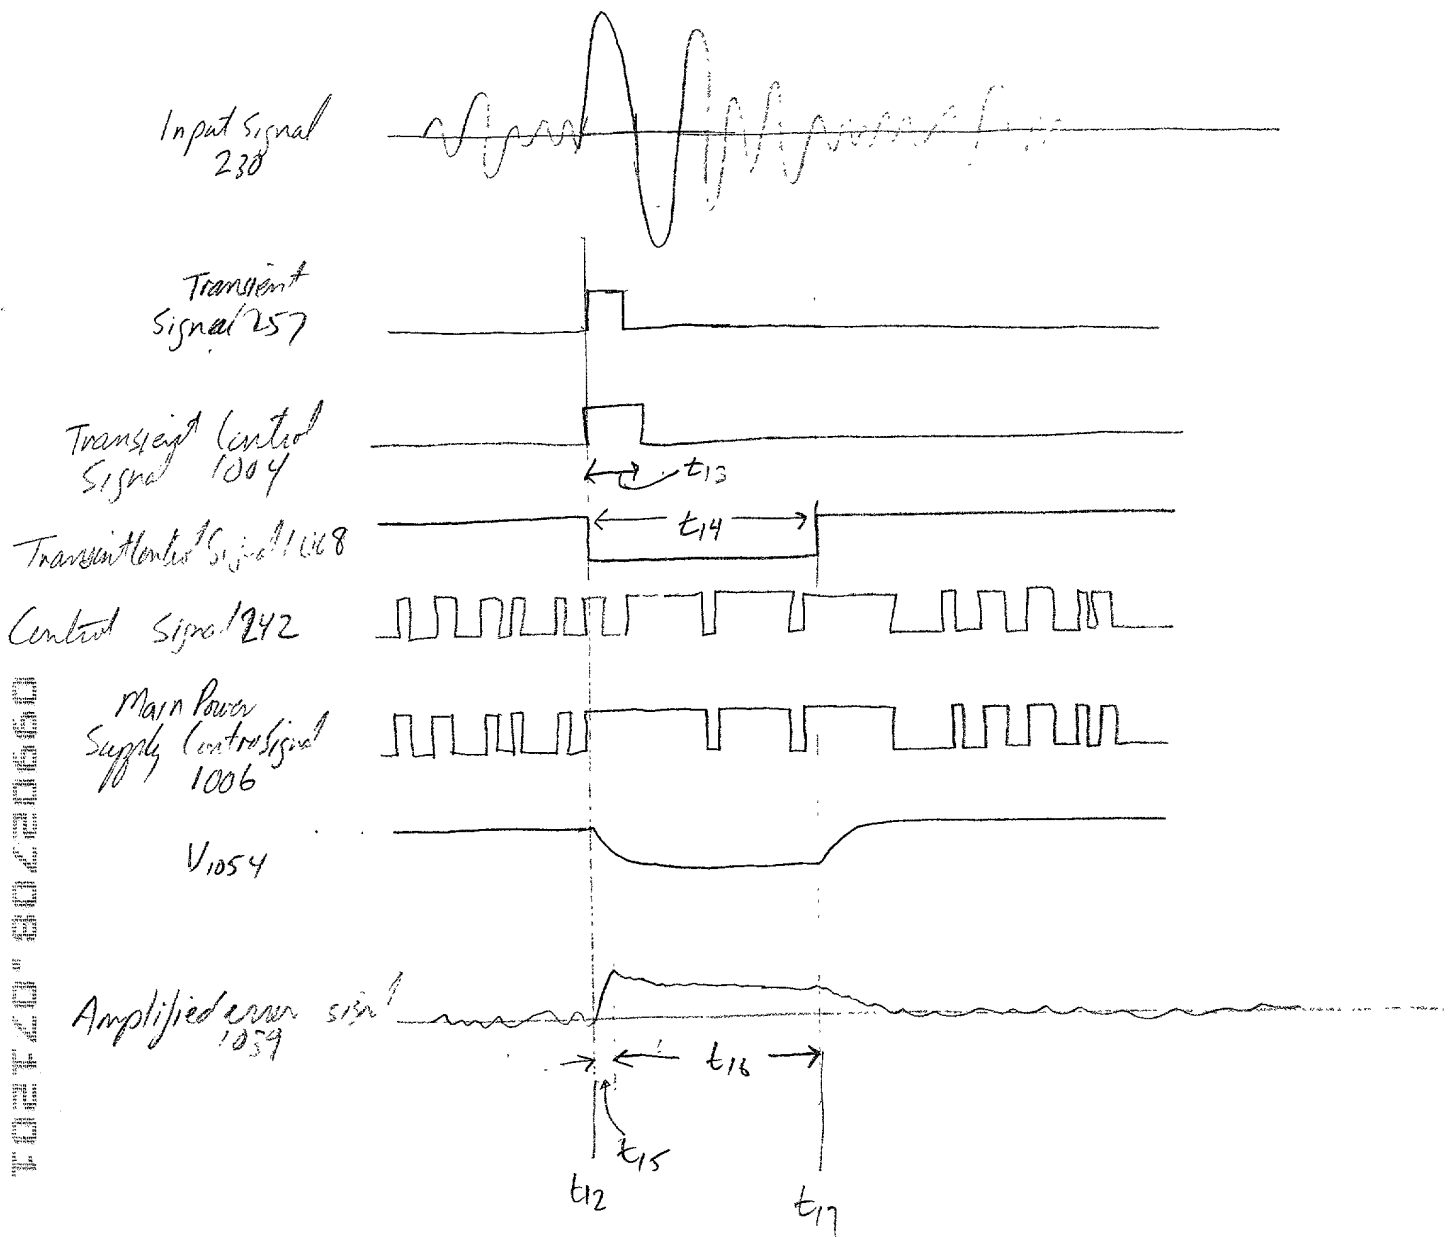 Input Signal
230
Transient
Signal 257
Transient Control
Signal 1004
t13
t14
Transient Control Signal 1068
Control Signal 242
Main Power
Supply Control Signal
1006
V1054
Amplified error signl
1059
t16
t15
t12
t17
09902708.071201